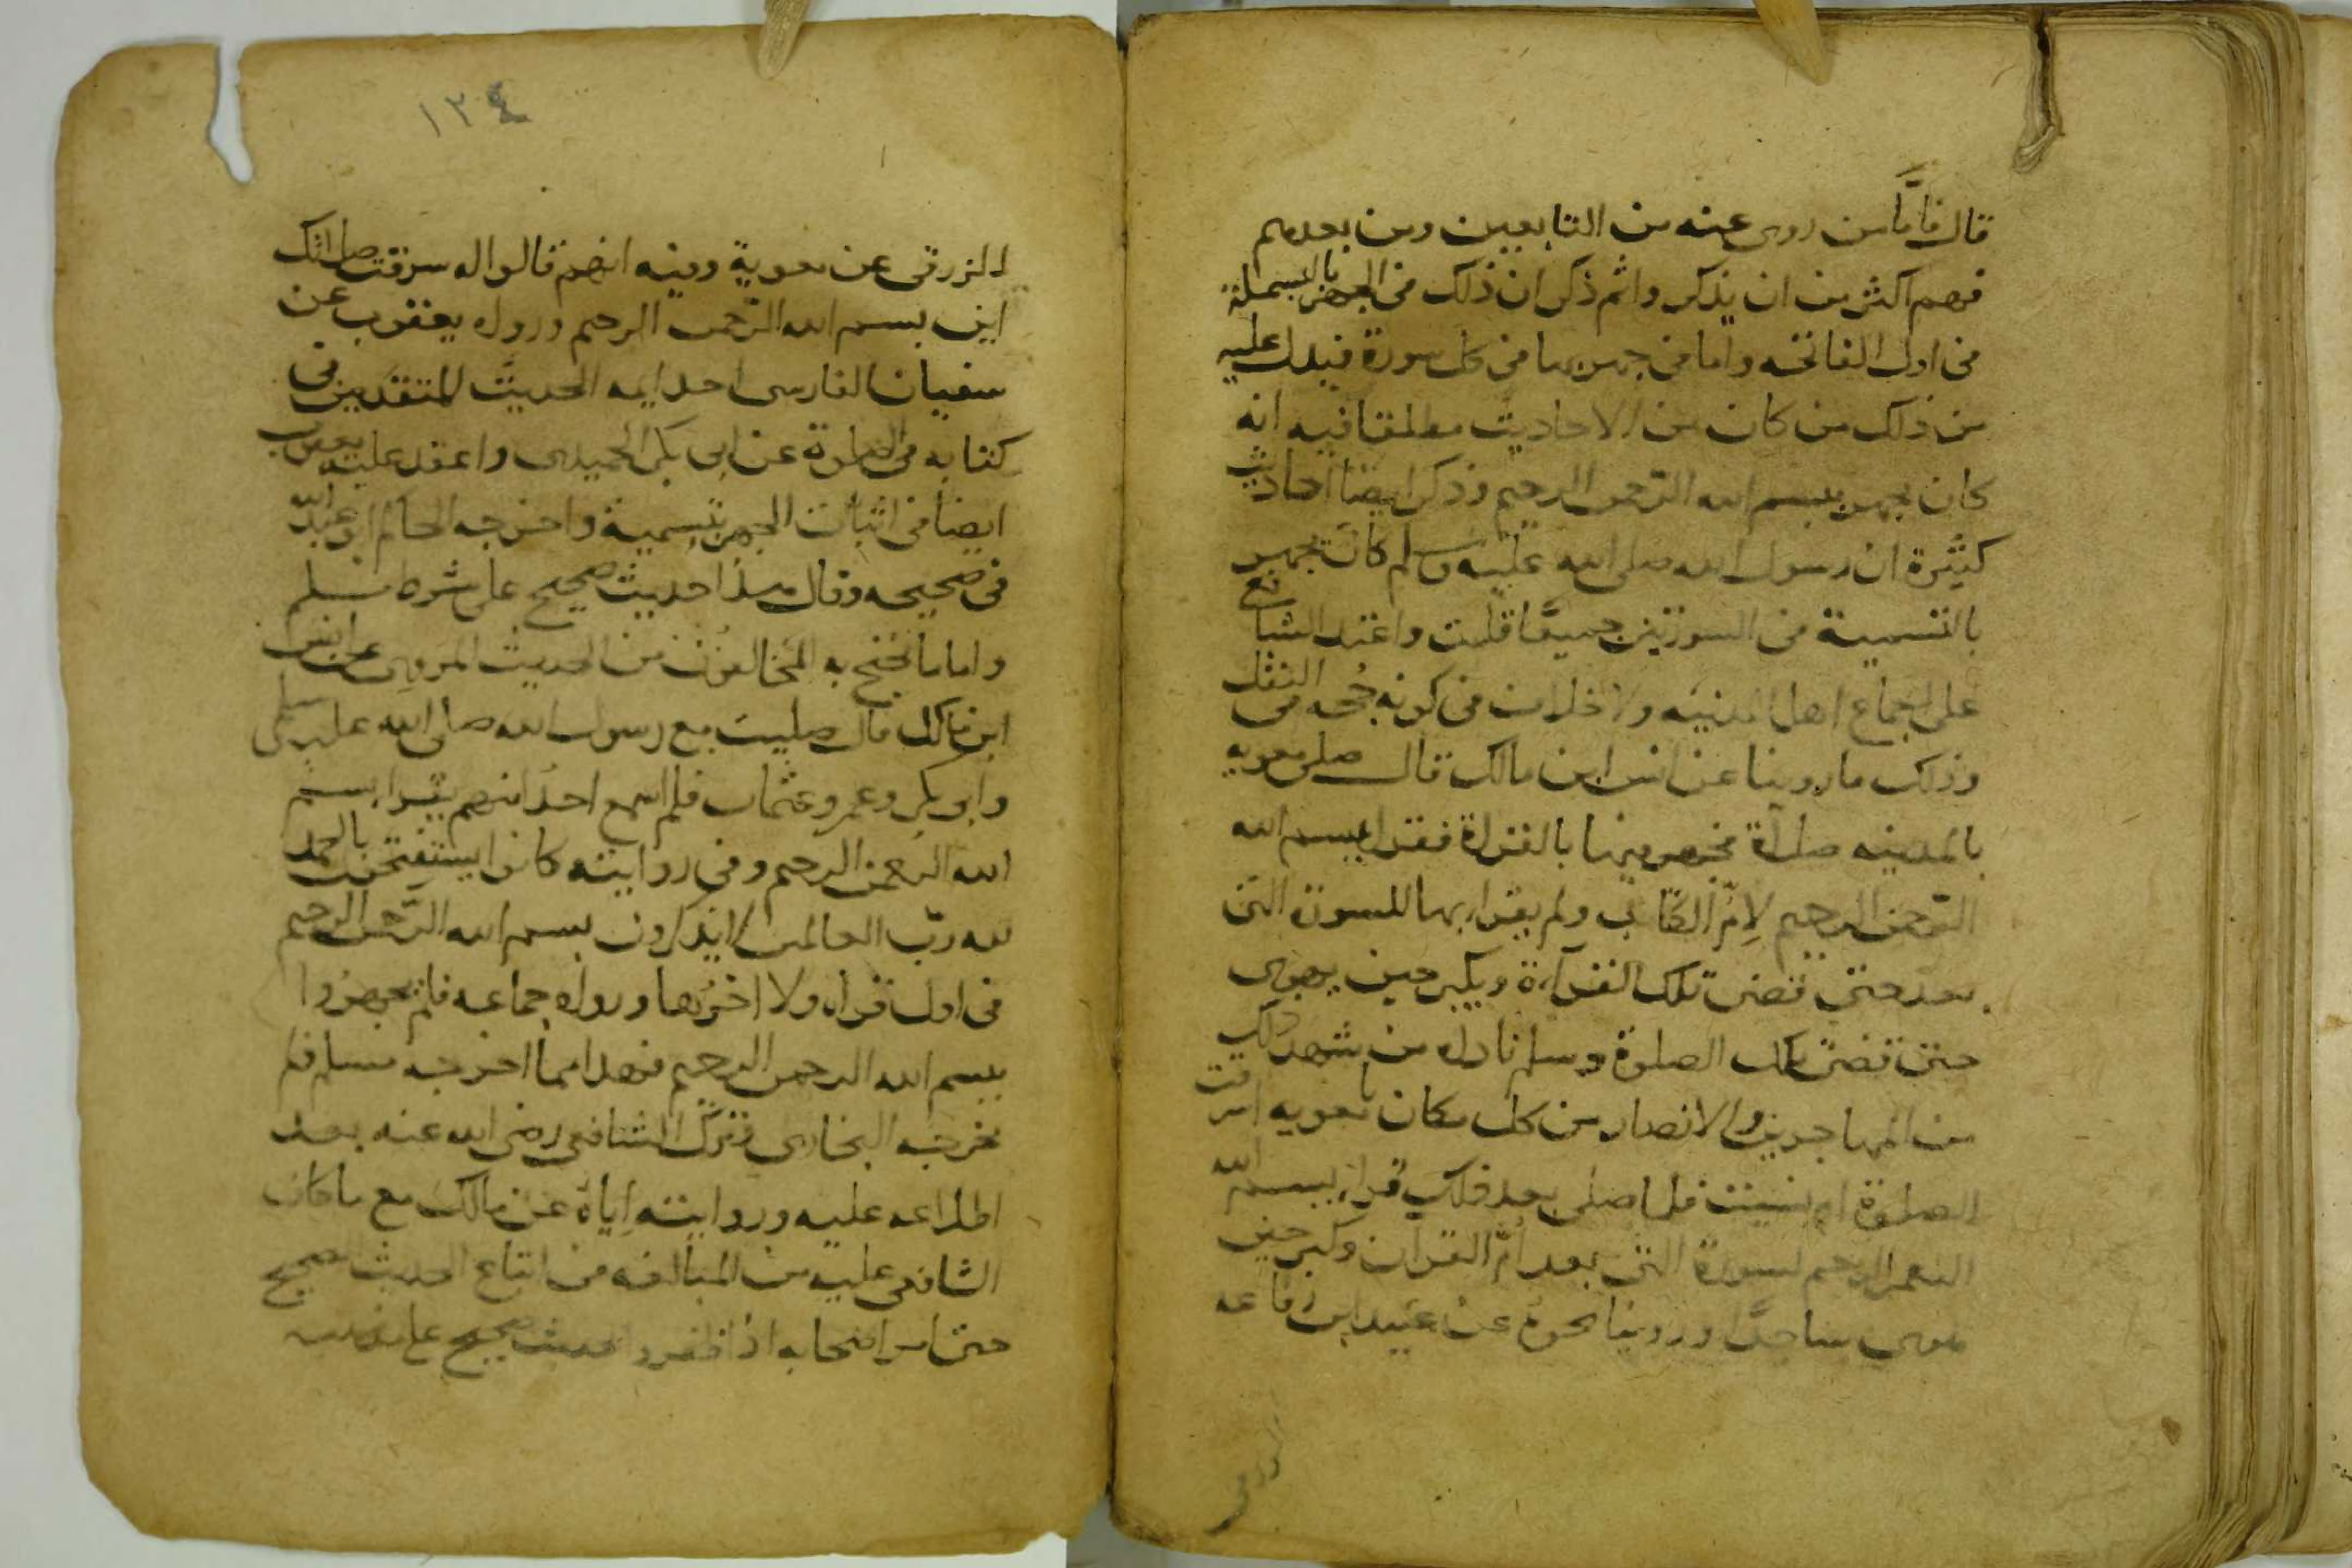 قال فاما من روى عنه من التابعين ومن بعدهم
فهم اكثر من ان يذكر وانم ذكر ان ذلك فى الجهر بالبسملة
فى اول الفاتحه واما فى جهر بها فى كل سورة فيدل عليه
من ذلك من كان من الاحاديث مطلقا فيه انه
كان يجهر ببسم الله الرحمن الرحيم وذكر ايضا احاديث
كثيرة ان رسول الله صلى الله عليه وسلم كان يجهر
بالتسمية فى السورتين جميعا قلت واعتمد الشافع
على اجماع اهل المدينه ولا خلاف فى كونه حجه فى النقل
وذلك ما روينا عن انس ابن مالك قال صلى معويه
بالمدينه صلاة فجهر فيها بالقراة فقرا بسم الله
الرحمن الرحيم لام الكتاب ولم يقرا بها للسورة التى
بعد حتى قضى تلك القراءة ويكبر حين يهوى
حتى قضى تلك الصلوة وسلم ناداه من شهد ذلك
من المهاجرين والانصار من كل مكان يا معويه اسرقت
الصلوة ام نسيت فلما صلى بعد ذلك قرا ببسم الله
الرحمن الرحيم لسورة التى بعد ام القران وكبر حين
هوى ساجدا وروينا نحوه عن عبيد ابن رفاعه
الزرقى
١٢٤
الزرقى عن معوية وفيه انهم قالوا له سرقت صلاتك
اين بسم الله الرحمن الرحيم ورواه يعقوب عن
سفيان الفارسى احد ايمه الحديث المتقدمين فى
كتابه فى الصلوة عن ابى بكر الحميدى واعتمد عليه يعقوب
ايضا فى اثبات الجهر بتسمية واخرجه الحاكم ابو عبد الله
فى صحيحه وقال هذا حديث صحيح على شرط مسلم
واما ما تحتج به المخالفون من الحديث المروى عن انس
ابن مالك قال صليت مع رسول الله صلى الله عليه وسلم
وابو بكر وعمر وعثمان فلم اسمع احدا منهم يقرا بسم
الله الرحمن الرحيم وفى روايته كانوا يستفتحون بالحمد
لله رب العالمين لا يذكرون بسم الله الرحمن الرحيم
فى اول قراه ولا اخرها ورواه جماعه فلم يجهروا
ببسم الله الرحمن الرحيم فهذا مما اخرجه مسلم فلم
يخرجه البخارى وترك الشافعى رضى الله عنه بعد
اطلاعه عليه وروايته اياه عن مالك مع ما كان
الشافعى عليه من المبالغه من اتباع الحديث الصحيح
حتى امر اصحابه اذا ظفروا بحديث صحيح على مذهبه